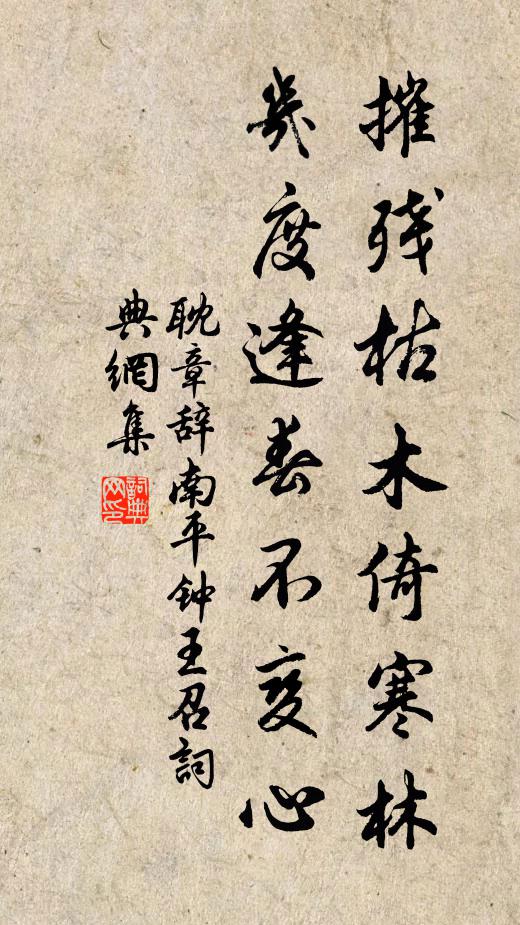 摧残枯木倚寒林
几度逢春不变心
耽章辞南平钟王召詞
典網集
詞典
网印